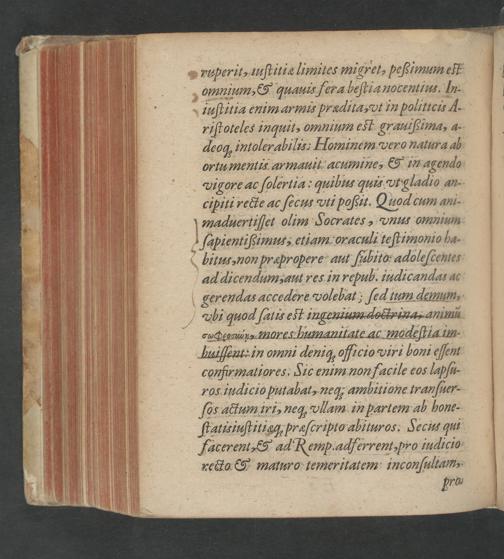 ruperit, iustitiæ limites migret, peßimum est
omnium, & quauis fera bestia nocentius. In-
iustitia enim armis prædita, vt in politicis A-
ristoteles inquit, omnium est grauißima, a-
deoq; intolerabilis: Hominem vero natura ab
ortu mentis armauit acumine, & in agendo
vigore ac solertia: quibus quis vt gladio an-
cipiti recte ac secus vti poßit. Quod cum ani-
maduertisset olim Socrates, vnus omnium
sapientißimus, etiam oraculi testimonio ha-
bitus, non præpropere aut subito adolescentes
ad dicendum, aut res in repub. iudicandas ac
gerendas accedere volebat; sed tum demum,
vbi quod satis est ingenium doctrina, animū
mores humanitate ac modestia im-
buissent: in omni deniq; officio viri boni essent
confirmatiores. Sic enim non facile eos lapsu-
ros iudicio putabat, neq; ambitione transuer-
sos actum iri, neq; vllam in partem ab hone-
statis iustitiæq; præscripto abituros. Secus qui
facerent, & ad Remp. adferrent, pro iudicio
recto & maturo temeritatem inconsultam,
pro